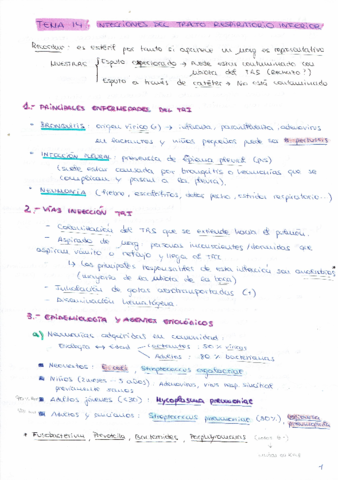 TEMA 14 INFECCIONES DEL TRATO RESPIRATORIO INFERIOR
Recordar: es estéril por tanto si aparece un mcrg es representativo
MUESTRAS
Esputo expectorado → Puede estar contaminado con
microbiota del TRS (Recuento!)
Esputo a través de catéter → No está contaminado
1.- PRINCIPALES ENFERMEDADES DEL TRI
- BRONQUITIS: origen vírico (+) → influenza, parainfluenza, adenovirus
en lactantes y niños pequeños puede ser B. pertussis
- INFECCIÓN PLEURAL: presencia de líquido pleural (pus)
(suele estar causada por bronquitis o neumonías que se
complican y pasan a la pleura).
- NEUMONÍA (fiebre, escalofríos, dolor pecho, dificultad respiratoria...)
2.- VÍAS INFECCIÓN TRI
- Colonización del TRS que se extiende hasta el pulmón.
- Aspirado de mcrg personas inconscientes/dormidas que
aspiran vómito o reflujo y llega al TRI.
↳ Los principales responsables de esta infección son anaerobios
(mayoría de la microbiota de la boca)
- Inhalación de gotas aerotransportadas (+)
- Diseminación hematógena.
3.- EPIDEMIOLOGÍA Y AGENTES ETIOLÓGICOS
a) Neumonías adquiridas en comunidad:
Etiología → edad
Lactantes: 80% víricas
Adultos: 80% bacterianas
Neonatos: E. coli, Streptococcus agalactiae
Niños (2 meses - 5 años): Adenovirus, virus resp. sincitial
Adultos jóvenes (<30): Mycoplasma pneumoniae
Adultos y ancianos: Streptococcus pneumoniae (80%)
+ Fusobacterium, Prevotella, Bacteroides, Porphyromonas
1